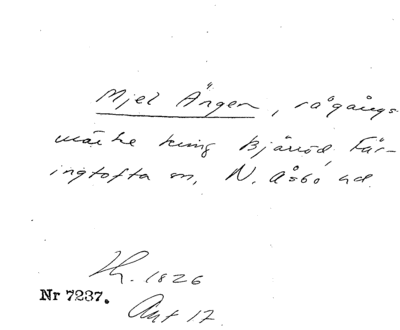 Mjel Ängen, rågångs-
märke kring Bjärröd, Fär-
ingtofta sn, N. Åsbo hd.
Lh. 1826
Nr 7237. Akt 17